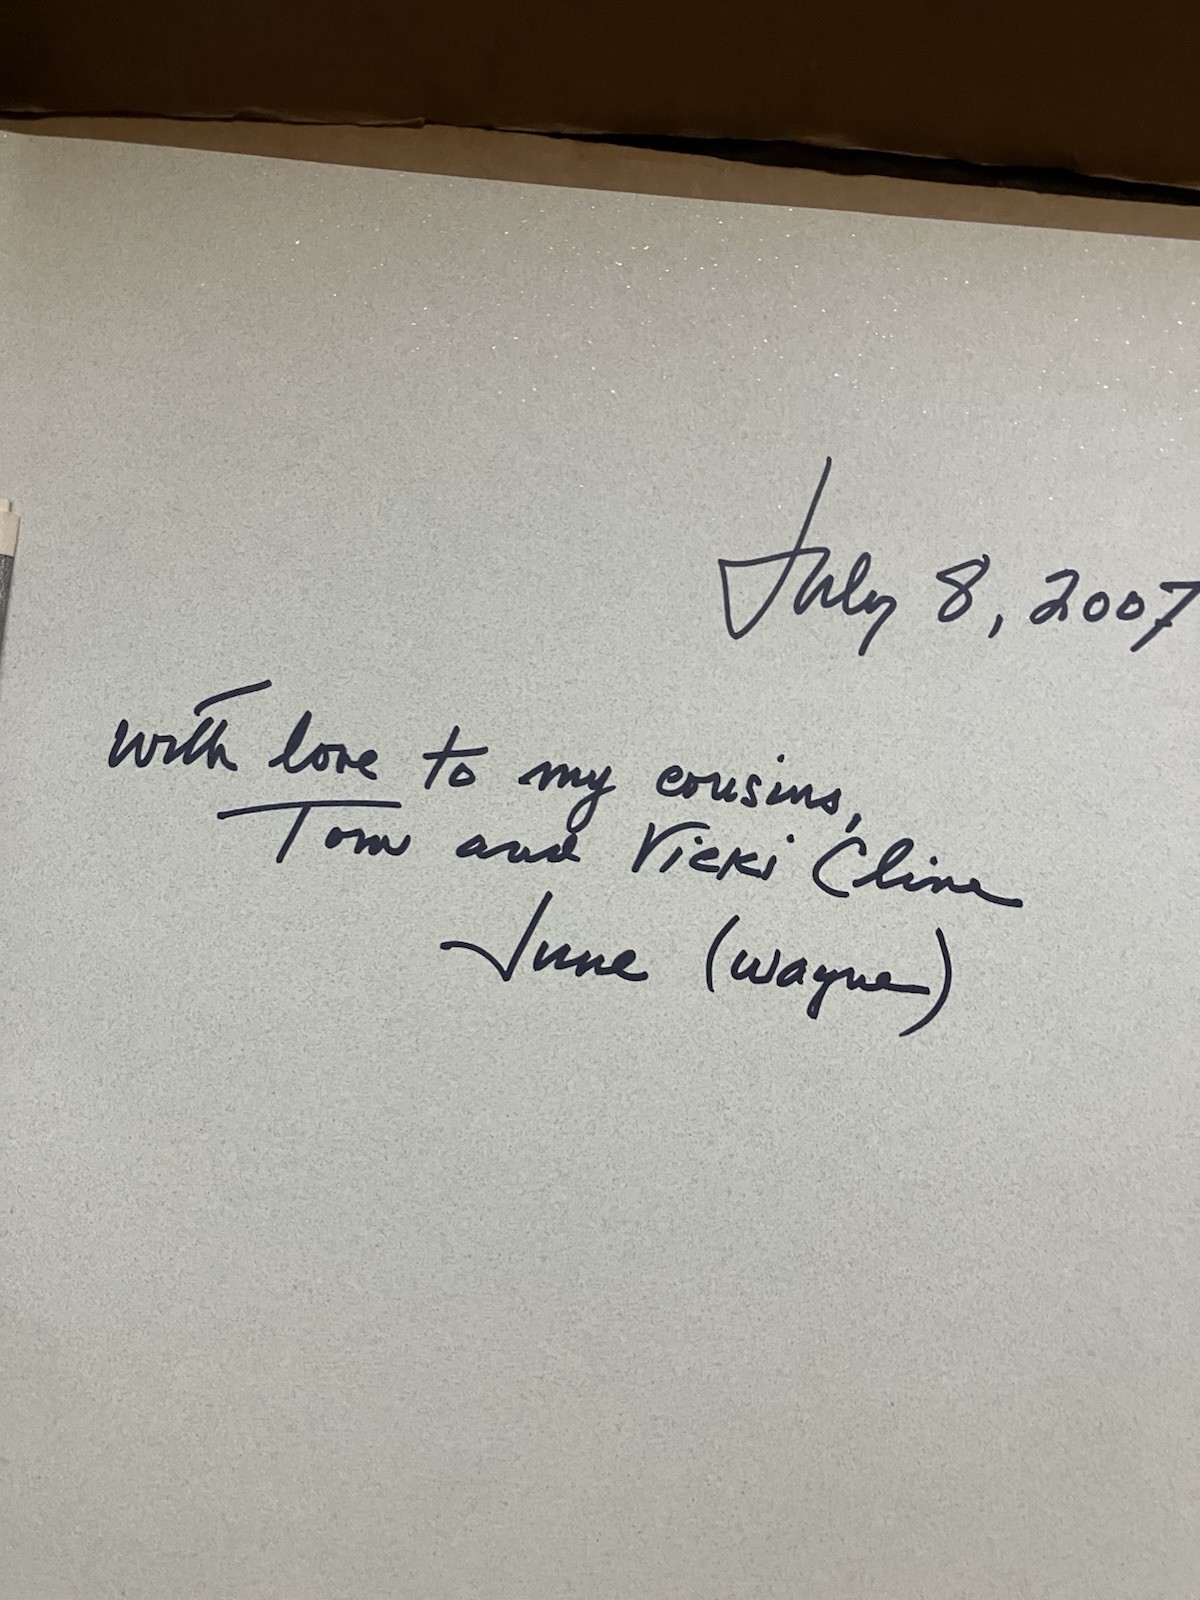 July 8, 2007
with love to my cousins,
Tom and Vicki Cline
June (Wayne)